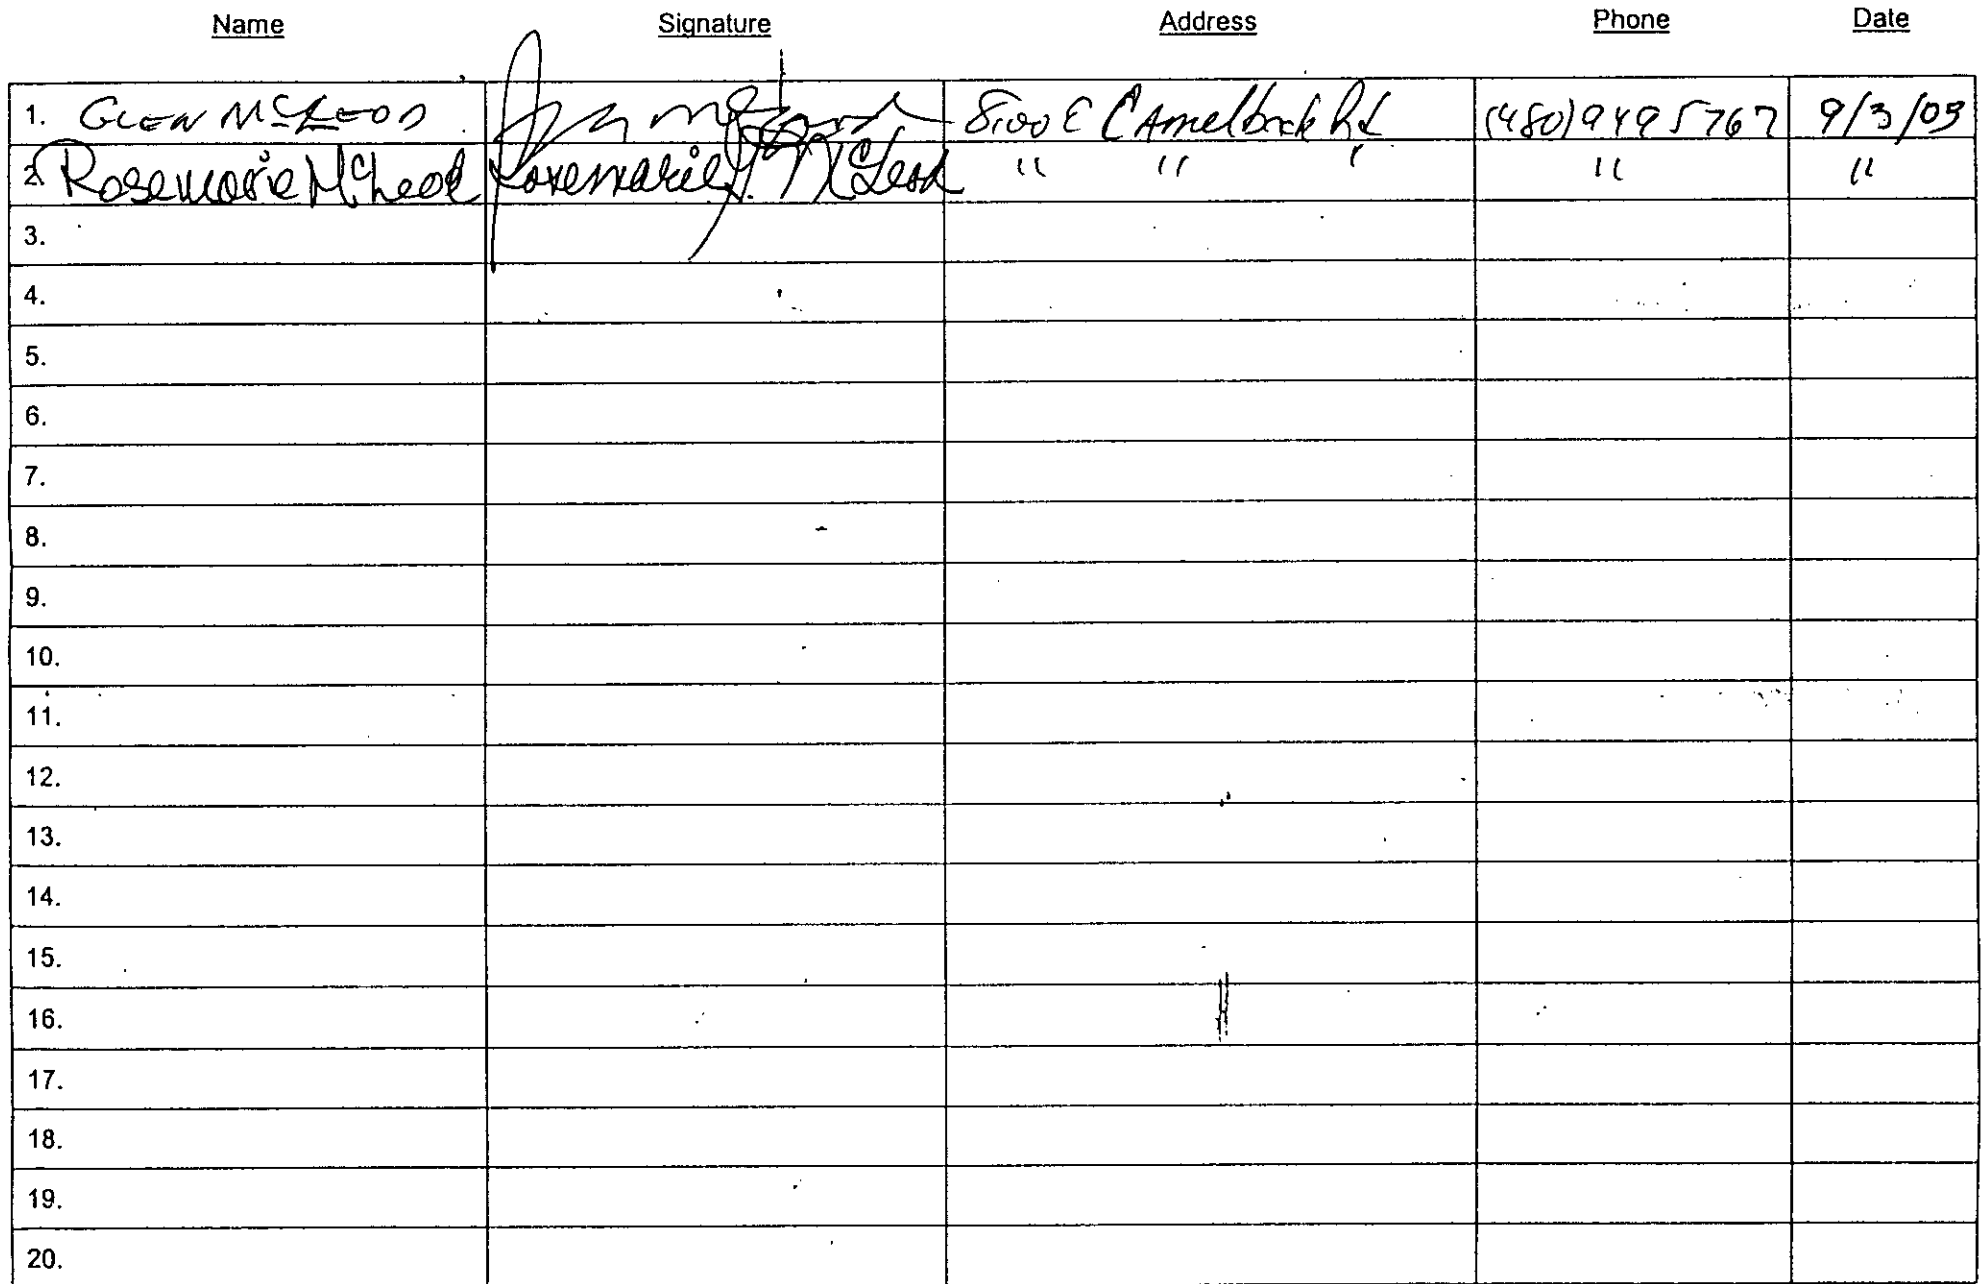 Name Signature Address Phone Date
1. GLEN McLEOD 8100 E CAmelback Rd (480) 949 5767 9/3/03
2. Rosemarie McLeod Rosemarie J. McLeod " " " " "
3.
4.
5.
6.
7.
8.
9.
10.
11.
12.
13.
14.
15.
16.
17.
18.
19.
20.